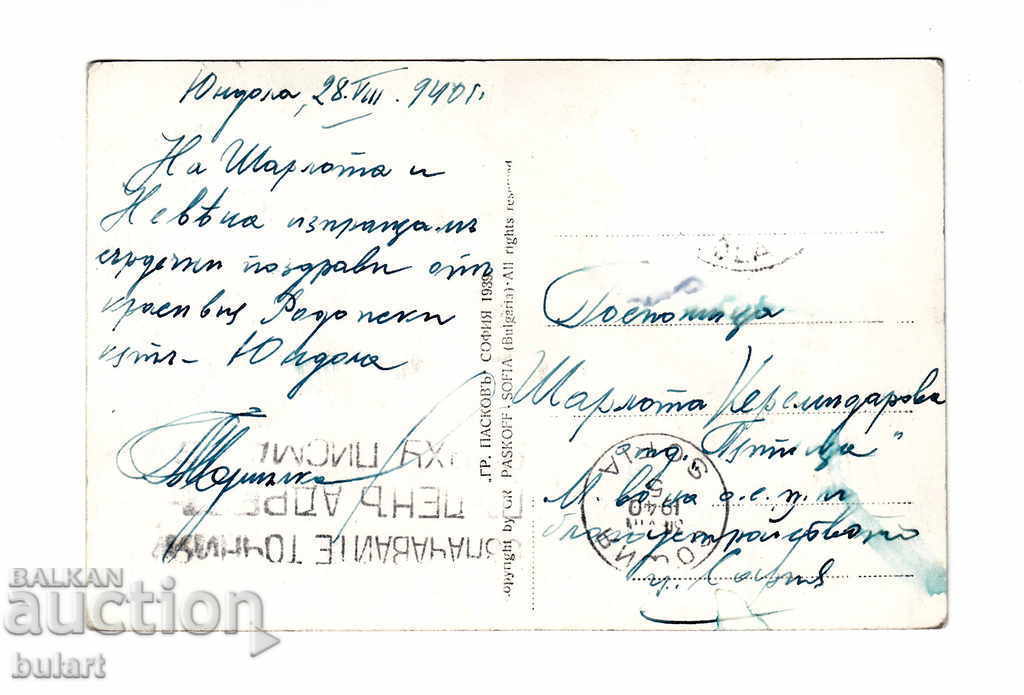 Юндола, 28.VIII.940 г.
На Шарлота и
Невѣна изпращамъ
сърдечни поздрави отъ
красивия Родопски
кътъ – Юндола
"ГР. ПАСКОВЪ" СОФИЯ 1939
Copyright by GR PASKOFF · SOFIA (Bulgaria) · All rights reserved
Госпожица
Шарлота Керемидарова
отд. "Пътища"
М-во на о.с.п. и
благоустройството
гр. София
СОФИЯ
1940
ОЗНАЧАВАЙТЕ ТОЧНИЯ
АДРЕСЪ
ПИСМ
BALKAN
auction
bulart